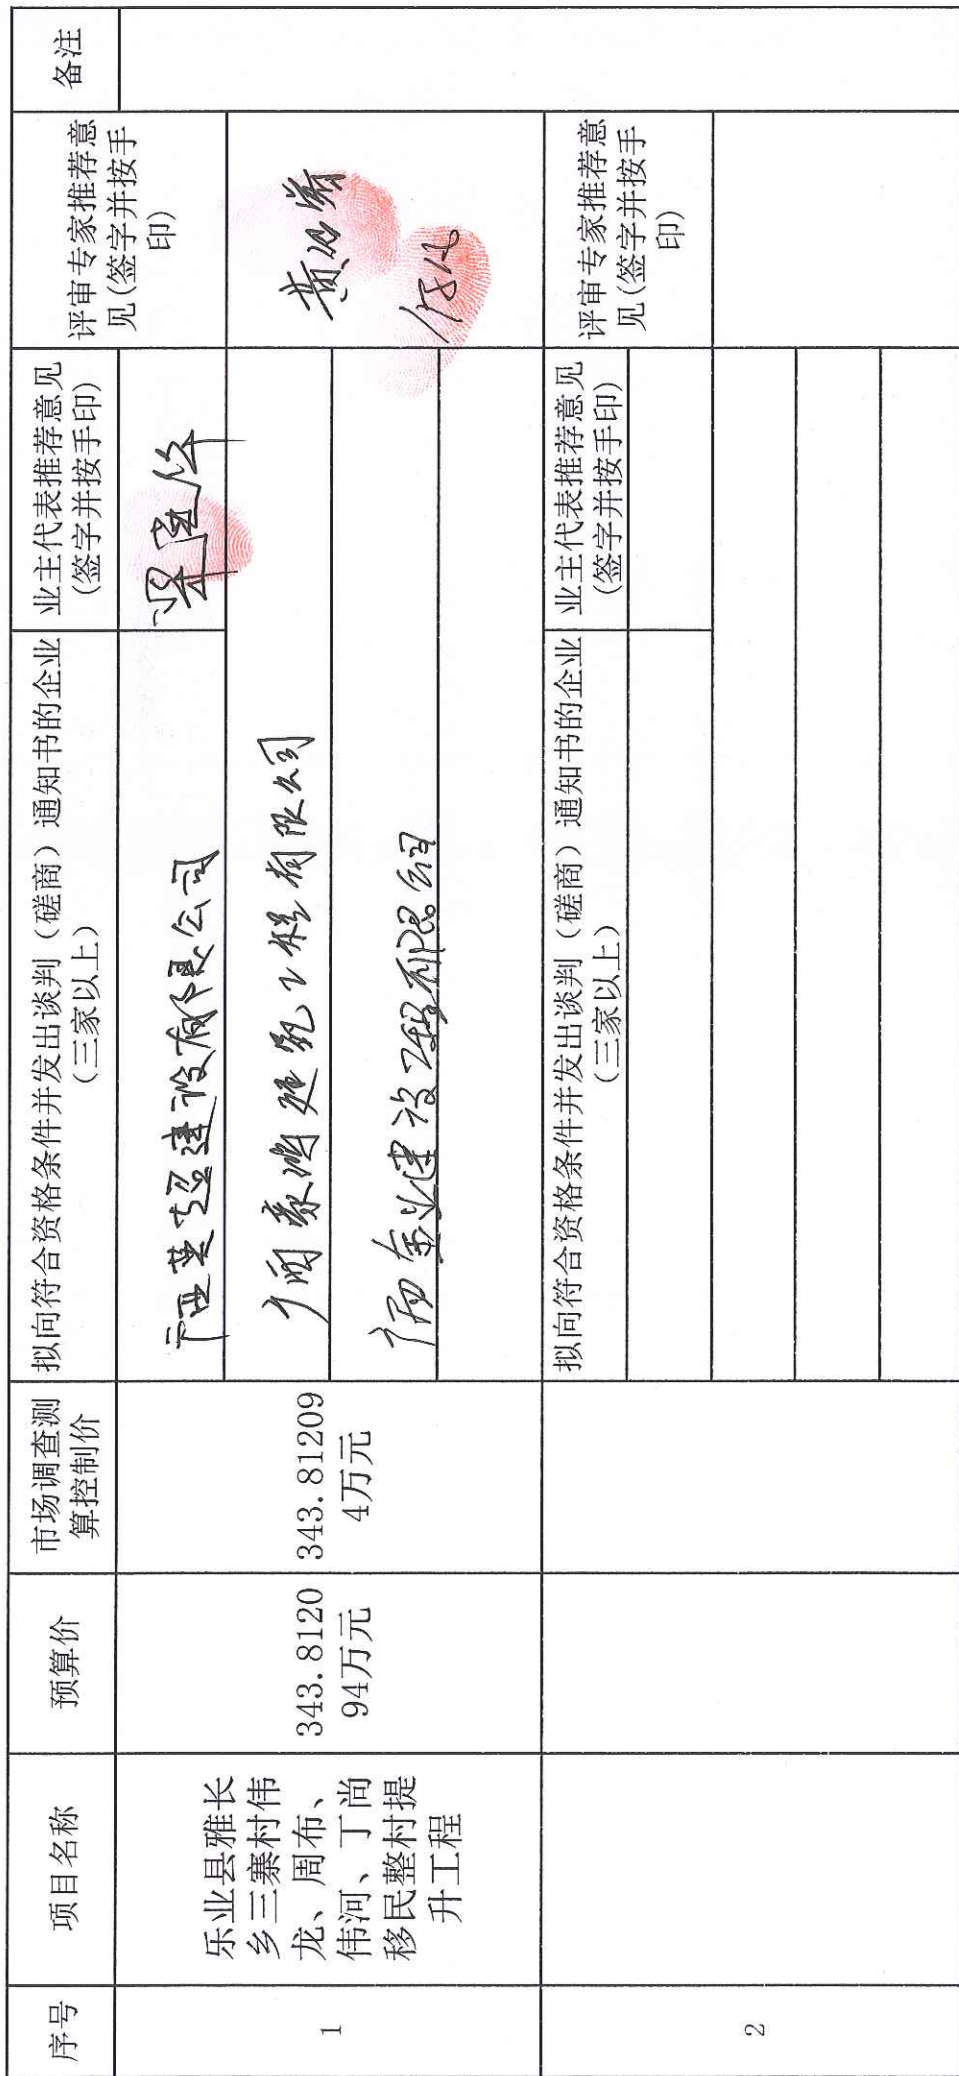 序号
项目名称
预算价
市场调查测
算控制价
拟向符合资格条件并发出谈判（磋商）通知书的企业
（三家以上）
业主代表推荐意见
(签字并按手印)
评审专家推荐意
见(签字并按手
印)
备注
1
乐业县雅长
乡三寨村伟
龙、周布、
伟河、丁尚
移民整村提
升工程
343.8120
94万元
343.81209
4万元
建设有限公司
工程有限公司
建设工程有限公司
拟向符合资格条件并发出谈判（磋商）通知书的企业
（三家以上）
业主代表推荐意见
(签字并按手印)
评审专家推荐意
见(签字并按手
印)
2